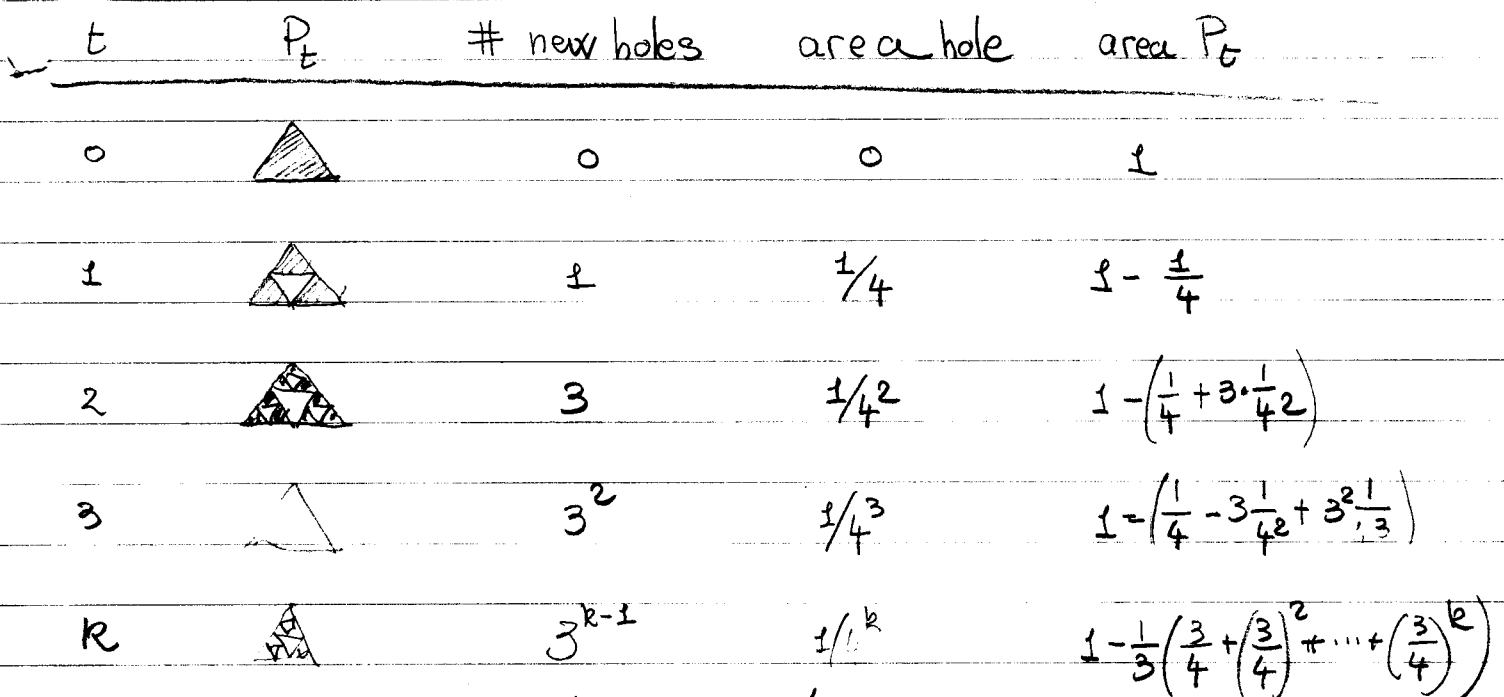 t P_t # new holes area hole area P_t
0 0 0 1
1 1 1/4 1 - 1/4
2 3 1/4² 1 - (1/4 + 3·1/4²)
3 3² 1/4³ 1 = (1/4 - 3 1/4² + 3² 1/ ³)
k 3^{k-1} 1/ ^k 1 - 1/3 (3/4 + (3/4)² + ··· + (3/4)^k)